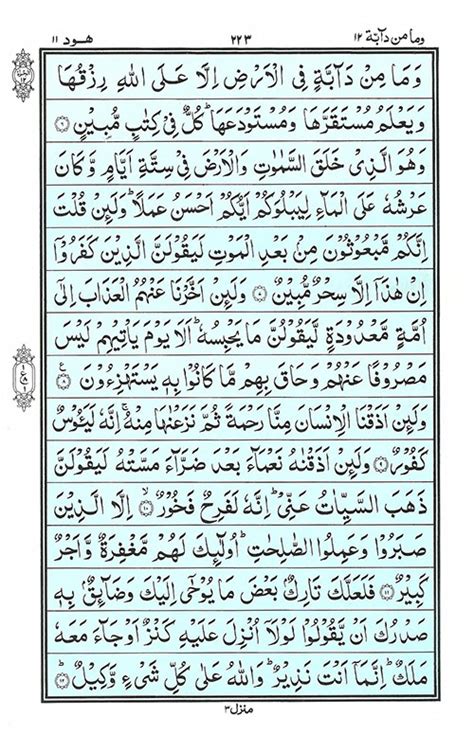 وما من دآبة ١٢
٢٢٣
هود ١١
وَمَا مِنْ دَآبَّةٍ فِی الْاَرْضِ اِلَّا عَلَی اللّٰهِ رِزْقُهَا
وَیَعْلَمُ مُسْتَقَرَّهَا وَمُسْتَوْدَعَهَا ؕ كُلٌّ فِیْ كِتٰبٍ مُّبِیْنٍ ۝٦
وَهُوَ الَّذِیْ خَلَقَ السَّمٰوٰتِ وَالْاَرْضَ فِیْ سِتَّةِ اَیَّامٍ وَّكَانَ
عَرْشُهٗ عَلَی الْمَآءِ لِیَبْلُوَكُمْ اَیُّكُمْ اَحْسَنُ عَمَلًا ؕ وَلَىِٕنْ قُلْتَ
اِنَّكُمْ مَّبْعُوْثُوْنَ مِنْۢ بَعْدِ الْمَوْتِ لَیَقُوْلَنَّ الَّذِیْنَ كَفَرُوْۤا
اِنْ هٰذَاۤ اِلَّا سِحْرٌ مُّبِیْنٌ ۝٧ وَلَىِٕنْ اَخَّرْنَا عَنْهُمُ الْعَذَابَ اِلٰۤی
اُمَّةٍ مَّعْدُوْدَةٍ لَّیَقُوْلُنَّ مَا یَحْبِسُهٗ ؕ اَلَا یَوْمَ یَاْتِیْهِمْ لَیْسَ
مَصْرُوْفًا عَنْهُمْ وَحَاقَ بِهِمْ مَّا كَانُوْا بِهٖ یَسْتَهْزِءُوْنَ ۝٨ ع
وَلَىِٕنْ اَذَقْنَا الْاِنْسَانَ مِنَّا رَحْمَةً ثُمَّ نَزَعْنٰهَا مِنْهُ ۚ اِنَّهٗ لَیَـُٔوْسٌ
كَفُوْرٌ ۝٩ وَلَىِٕنْ اَذَقْنٰهُ نَعْمَآءَ بَعْدَ ضَرَّآءَ مَسَّتْهُ لَیَقُوْلَنَّ
ذَهَبَ السَّیِّاٰتُ عَنِّیْ ؕ اِنَّهٗ لَفَرِحٌ فَخُوْرٌ ۝١٠ۙ اِلَّا الَّذِیْنَ
صَبَرُوْا وَعَمِلُوا الصّٰلِحٰتِ ؕ اُولٰٓىِٕكَ لَهُمْ مَّغْفِرَةٌ وَّاَجْرٌ
كَبِیْرٌ ۝١١ فَلَعَلَّكَ تَارِكٌۢ بَعْضَ مَا یُوْحٰۤی اِلَیْكَ وَضَآىِٕقٌۢ بِهٖ
صَدْرُكَ اَنْ یَّقُوْلُوْا لَوْلَاۤ اُنْزِلَ عَلَیْهِ كَنْزٌ اَوْ جَآءَ مَعَهٗ
مَلَكٌ ؕ اِنَّمَاۤ اَنْتَ نَذِیْرٌ ؕ وَاللّٰهُ عَلٰی كُلِّ شَیْءٍ وَّكِیْلٌ ۝١٢ؕ
منزل ٣